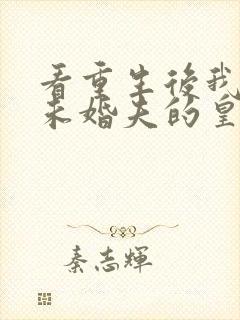 看重生後我
未婚夫的皇
秦志輝